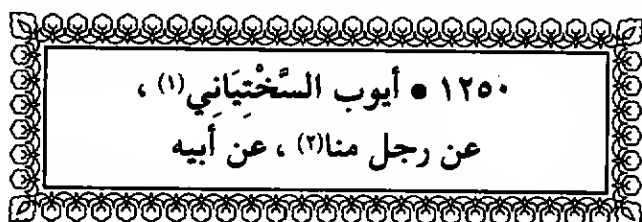 ١٢٥٠ • أيوب السَّخْتِيَانِي(١) ،
عن رجل منا(٢) ، عن أبيه